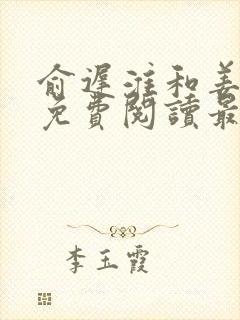 俞遲淮和姜
免費閱讀最
李玉霞